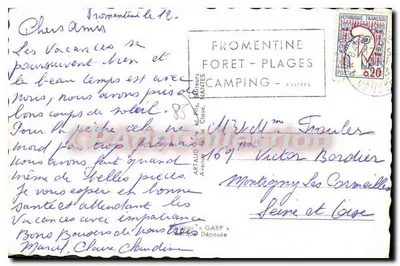 Fromentine le 12.
Chers Amis
Les Vacances se
poursuivent bien et
le beau temps est avec
nous, nous avons pris de
bons coups de soleil.
Pour la pêche cela ne
mord pas trop
nous avons fait quand
même de belles pièces
Je vous espère en bonne
Santé et attendant les
Vacances avec impatience
Bons Baisers de Nous Trois
Marcel, Claire Claudine
FROMENTINE
FORET - PLAGES
CAMPING -
REPUBLIQUE FRANÇAISE
POSTES 0,20
85
Mr et Mme
169 Victor Bordier
Montigny les Cormeilles
Seine et Oise
ARTAUD
NANTES
« GABY »
Déposée